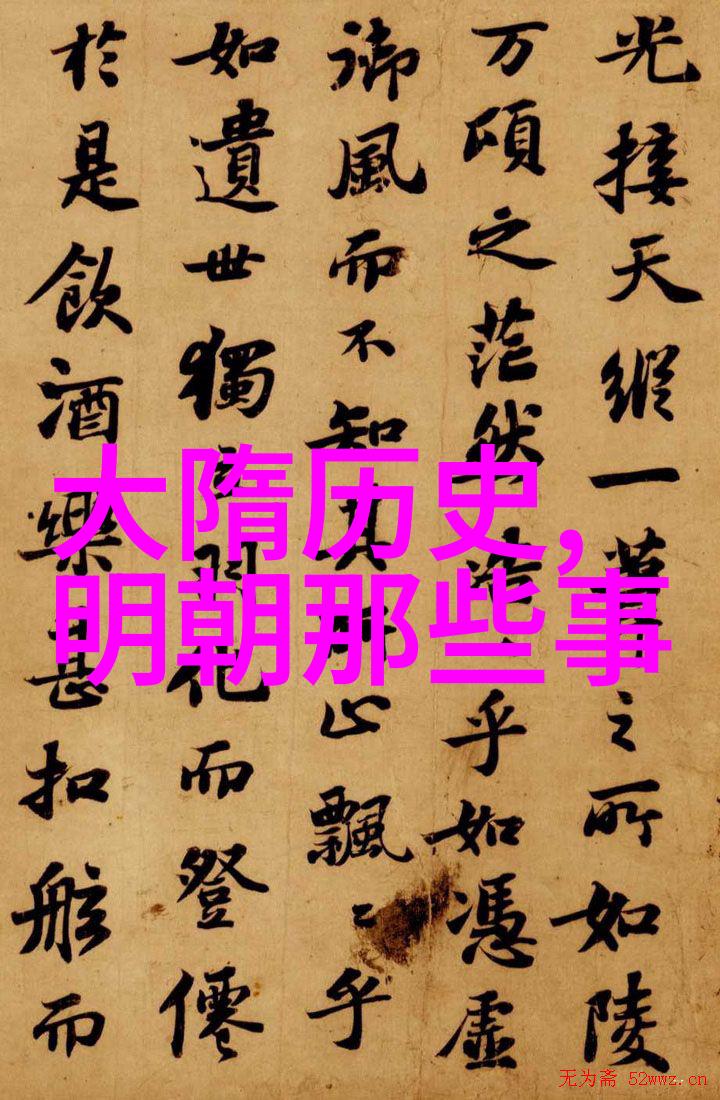 光接天縱一葦之所如陵
万頃之茫然浩〻乎如憑虛
御風而不知其所止飄〻乎
如遺世獨立羽化而登僊
於是飲酒樂甚扣舷而
大隋历史,
明朝那些事
无为斋 52wwz.cn